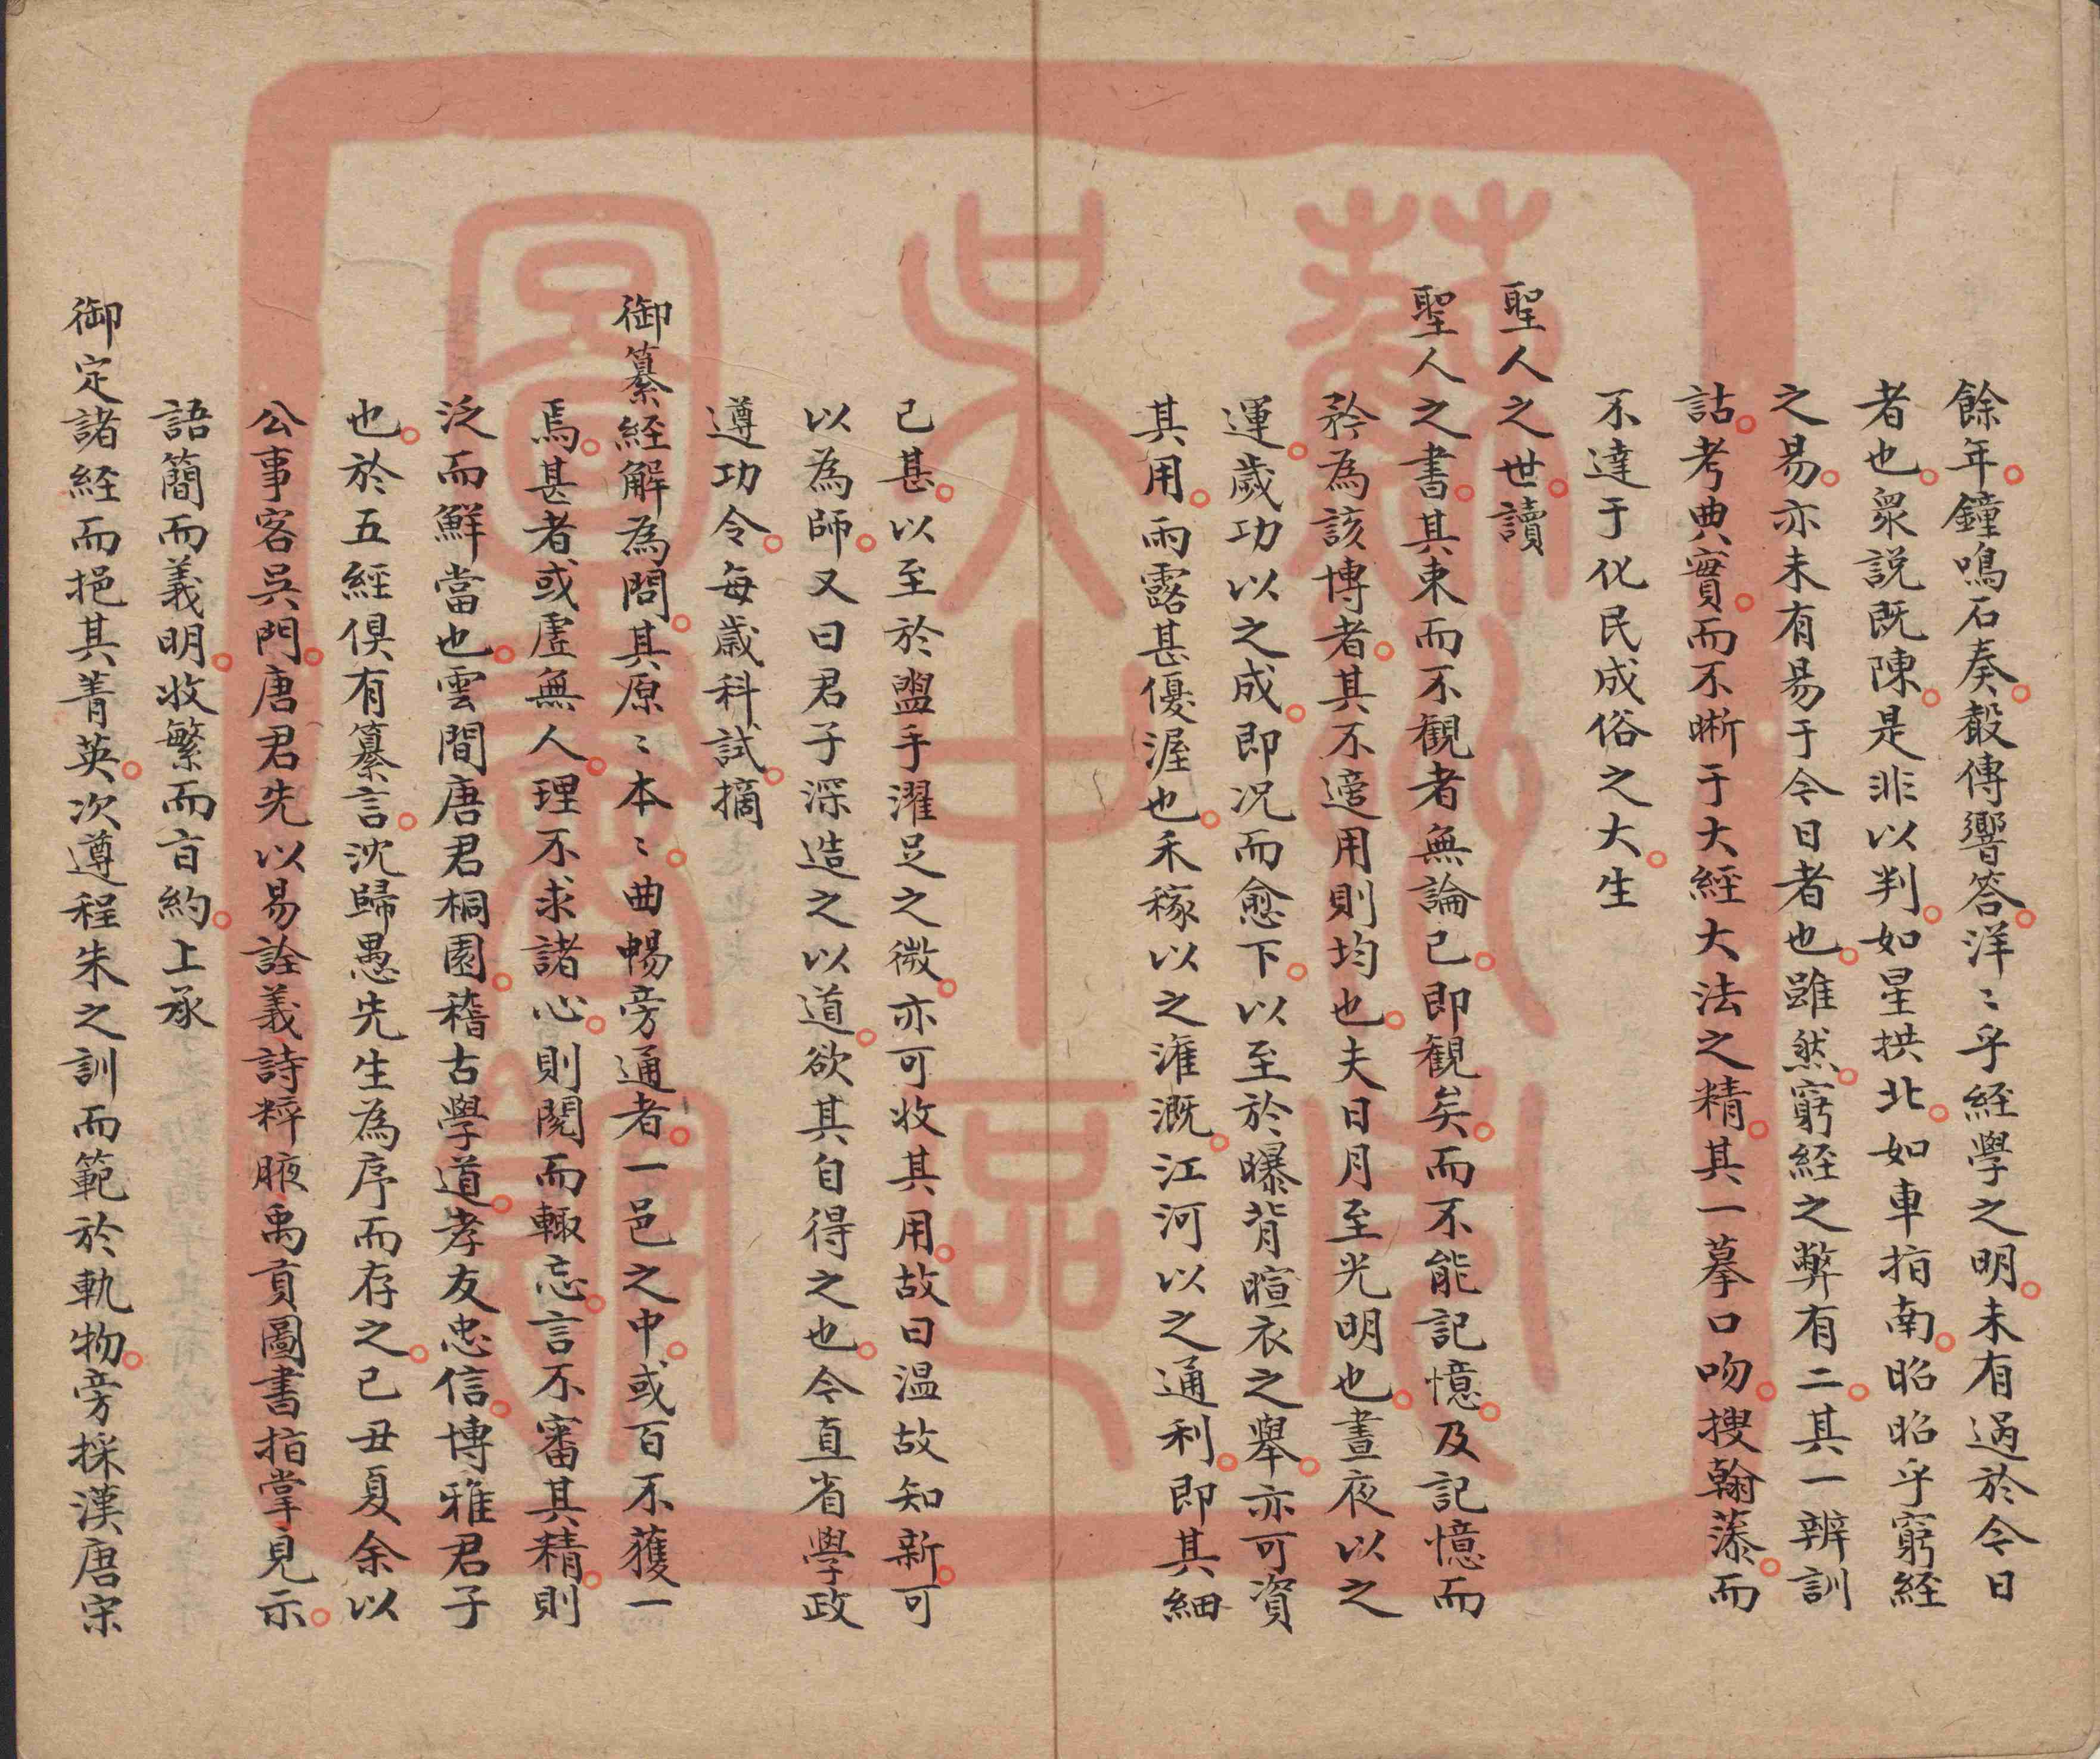 餘年鐘鳴石奏縠傳響答洋〻乎經學之明未有過於今日
者也衆説既陳是非以判如星拱北如車指南昭昭乎窮經
之易亦未有易于今日者也雖然窮經之弊有二其一辨訓
詁考典實而不晰于大經大法之精其一摹口吻搜翰藻而
不達于化民成俗之大生
聖人之世讀
聖人之書其束而不觀者無論已即觀矣而不能記憶及記憶而
矜為該博者其不適用則均也夫日月至光明也晝夜以之
運歲功以之成即况而愈下以至於曝背暄衣之舉亦可資
其用雨露甚優渥也禾稼以之漼溉江河以之通利即其細
已甚以至於盥手濯足之微亦可收其用故曰温故知新可
以為師又曰君子深造之以道欲其自得之也令直省學政
遵功令每歲科試摘
御纂經解為問其原〻本〻曲暢旁通者一邑之中或百不獲一
焉甚者或虛無人理不求諸心則閱而輙忘言不審其精則
泛而鮮當也雲間唐君桐園稽古學道孝友忠信博雅君子
也於五經俱有纂言沈歸愚先生為序而存之已丑夏余以
公事客吳門唐君先以易詮義詩粹腋禹貢圖書指掌見示
語簡而義明收繁而旨約上承
御定諸經而挹其菁英次遵程朱之訓而範於軌物旁採漢唐宋